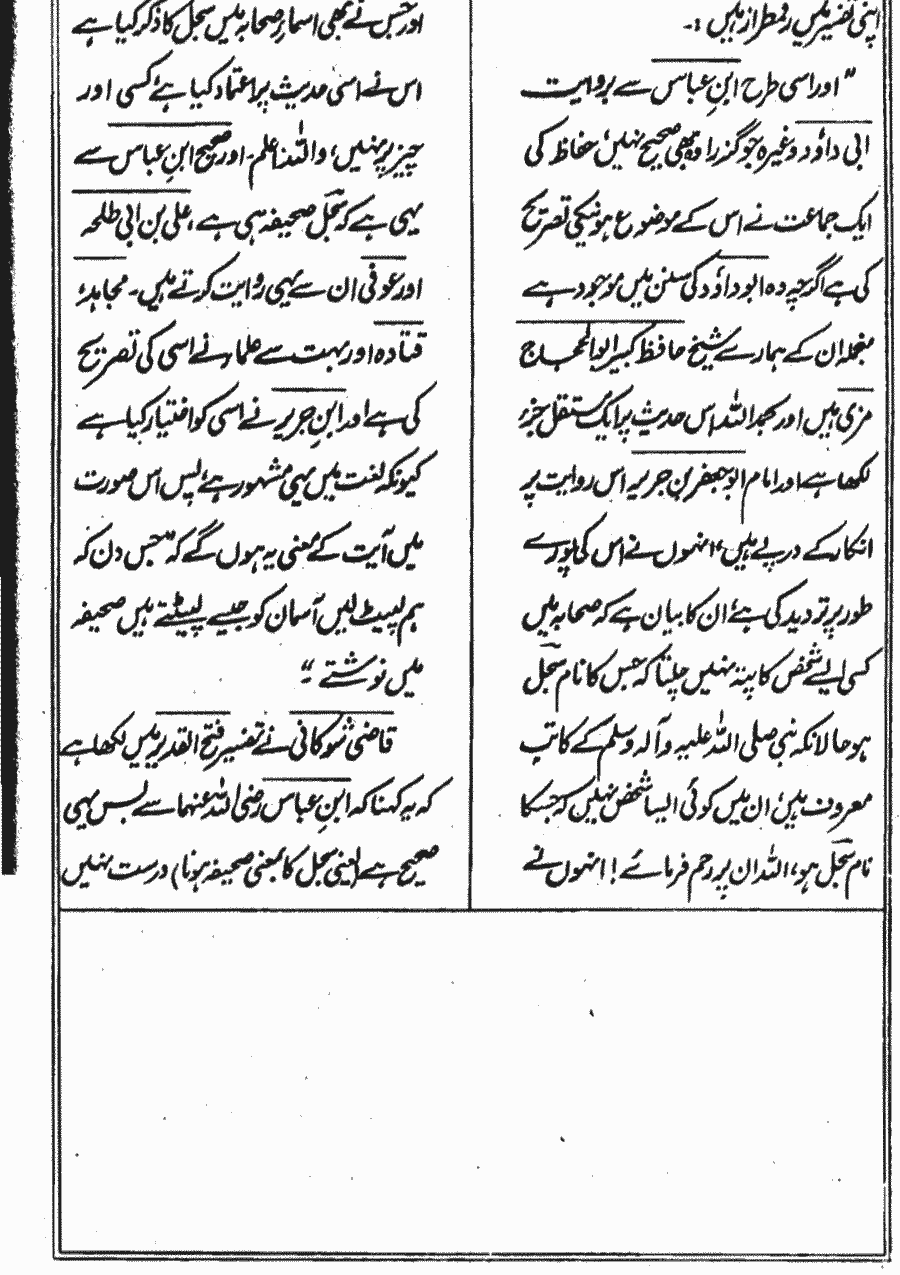 اپنی تفسیر میں رقمطراز ہیں :۔
” اور اسی طرح ابنِ عباس سے بروایت
ابی داؤد وغیرہ جو گزرا وہ بھی صحیح نہیں‘ حفاظ کی
ایک جماعت نے اس کے موضوع ہونیکی تصریح
کی ہے اگرچہ وہ ابو داؤد کی سنن میں موجود ہے
منجملہ ان کے ہمارے شیخ حافظ کبیر ابو الحجاج
مزی ہیں اور بحمد اللہ اس حدیث پر ایک مستقل جزء
لکھا ہے اور امام ابو جعفر بن جریر اس روایت پر
انکار کے درپے ہیں‘ انہوں نے اس کی پورے
طور پر تردید کی ہے‘ ان کا بیان ہے کہ صحابہ میں
کسی ایسے شخص کا پتہ نہیں چلتا کہ جس کا نام سجل
ہو حالانکہ نبی صلی اللہ علیہ وآلہ وسلم کے کاتب
معروف ہیں‘ ان میں کوئی ایسا شخص نہیں کہ جسکا
نام سجل ہو‘ اللہ ان پر رحم فرمائے ! انہوں نے
اور جس نے بھی اسماءِ صحابہ میں سجل کا ذکر کیا ہے
اس نے اسی حدیث پر اعتماد کیا ہے‘ کسی اور
چیز پر نہیں‘ واللہ اعلم‘ اور صحیح ابنِ عباس سے
یہی ہے کہ سجل صحیفہ ہی ہے‘ علی بن ابی طلحہ
اور عوفی ان سے یہی روایت کرتے ہیں۔ مجاہد‘
قتادہ اور بہت سے علماء نے اسی کی تصریح
کی ہے اور ابنِ جریر نے اسی کو اختیار کیا ہے
کیونکہ لغت میں یہی مشہور ہے‘ پس اس صورت
میں آیت کے معنی یہ ہوں گے کہ ”جس دن کہ
ہم لپیٹ لیں آسمان کو جیسے لپیٹتے ہیں صحیفہ
میں نوشتے “
قاضی شوکانی نے تفسیر فتح القدیر میں لکھا ہے
کہ یہ کہنا کہ ابنِ عباس رضی اللہ عنہما سے بس یہی
صحیح ہے (یعنی سجل کا بمعنی صحیفہ ہونا) درست نہیں